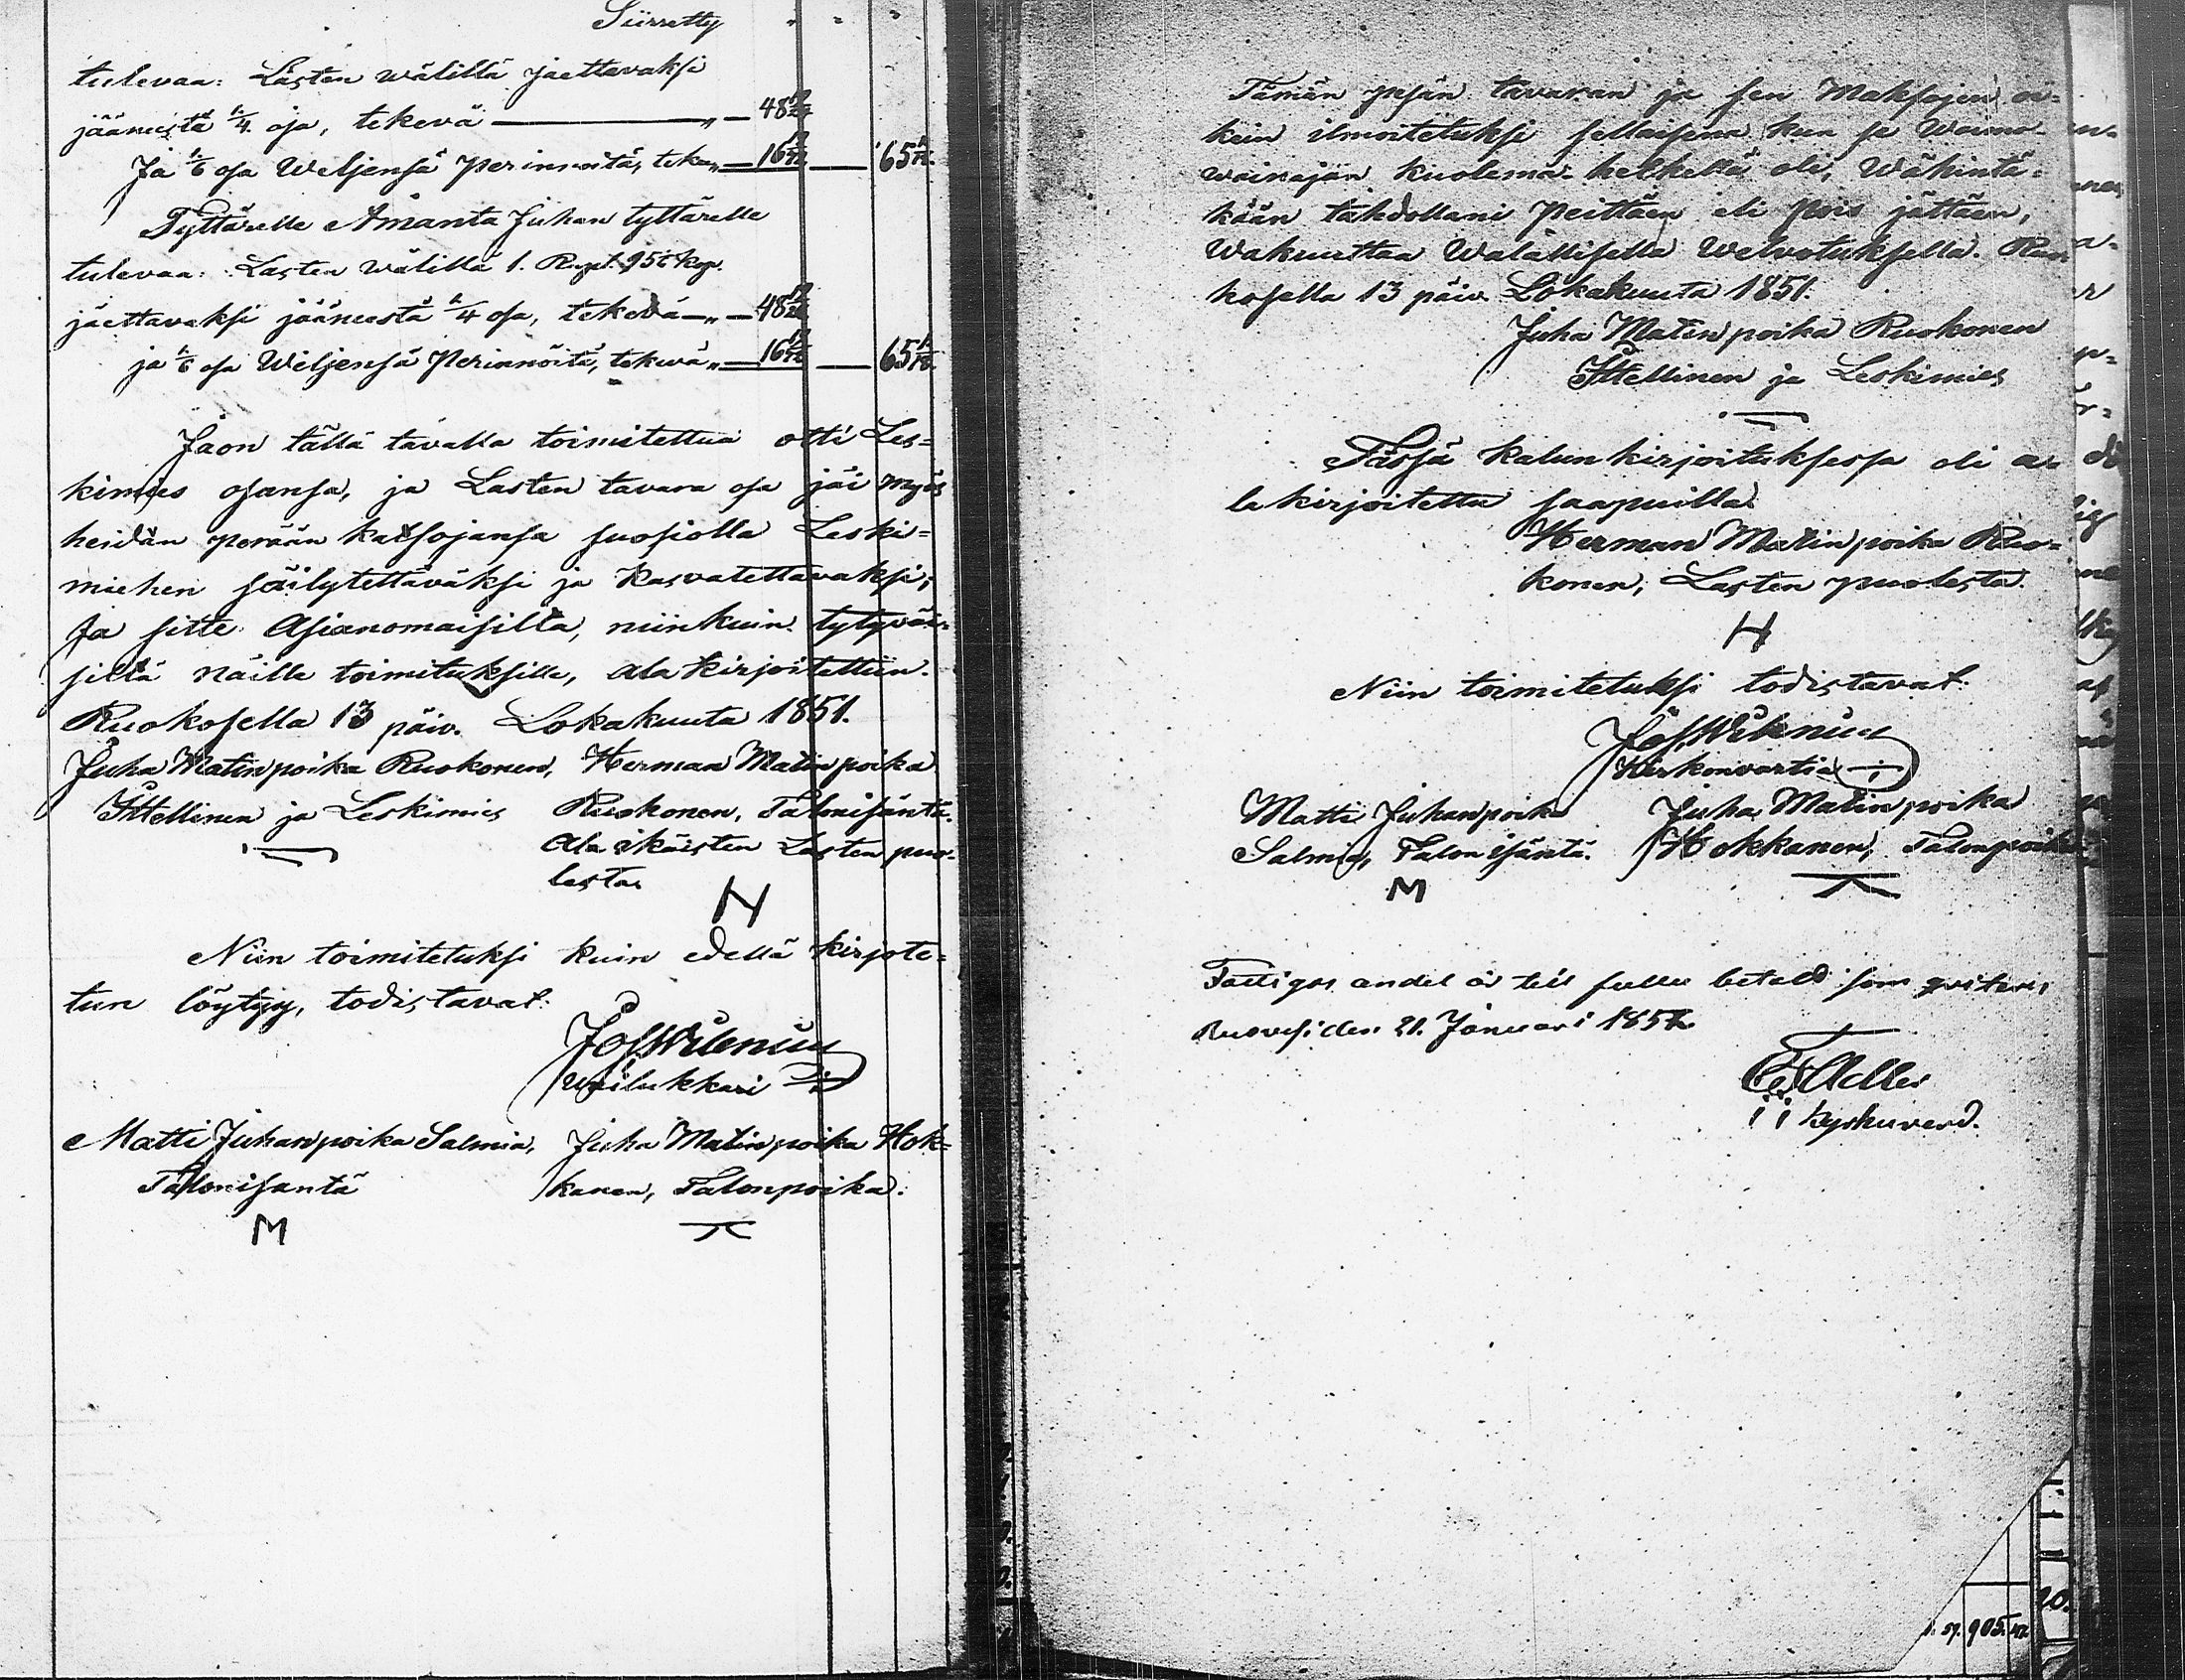 Siirretty
tulevaa: Lasten wälillä jaettavaksi
jäänestä 1/4 osa, tekevä — „ — 48
Ja 1/6 osa Weljensä perinnöitä, tekev „ — 16 — 65
Tyttärelle Amanta Juhan tyttärelle
tulevaa: Lasten wälillä 1. Rupl. 95 kop.
jaettavaksi jäänestä 1/4 osa, tekevä — „ — 48
ja 1/6 osa Weljensä Perinnöitä, tekevä „ — 16 — 65
Jaon tällä tavalla toimitettua otti Les=
kimies osansa, ja Lasten tavara osa jäi myös
heidän perään katsojansa suosiolla Leski=
miehen säilytettäväksi ja Kasvatettavaksi;
Ja sitte Asianomaisilta, niinkuin tytyväi=
siltä näille toimituksille, ala kirjoitettiin.
Ruokosella 13 päiv. Lokakuuta 1851.
Juha Matinpoika Ruokonen, Herman Matinpoika
Ittellinen ja Leskimies Ruokonen, Talonisäntä.
Ala ikäisten Lasten puo-
lesta.
H
Niin toimitetuksi kuin edellä kirjote=
tun löytyy, todistavat:
Jos Wilenius
Matti Juhanpoika Salmia, Juha Matinpoika Hok=
Talonisäntä kanen, Talonpoika.
M
Tämän pesän tavaran ja sen Maksojen oi=
kein ilmoitetuksi sellaisena kun se Waimo-
wainajan kuolema-hetkellä oli, Wähintä=
kään tahdollani Peittäen eli pois jättäen,
Wakuuttaa Walallisella Welvotuksella. Ruo
kosella 13 päiv. Lokakuuta 1851.
Juha Matinpoika Ruokonen
Ittellinen ja Leskimies
Tässä kalunkirjoituksessa oli a-
lakirjoitettu saapuilla
Herman Matinpoika Ruo=
konen, Lasten puolesta.
H
Niin toimitetuksi todistavat:
Jos Wilenius
Kirkonvartia
Matti Juhanpoika Juha Matinpoika
Salmia, Talonisäntä. Hokkanen, Talonpoika
M
Fattigas andel är till fullo betald som qvitteras
Ruovesi den 21. Januari 185
905
20.